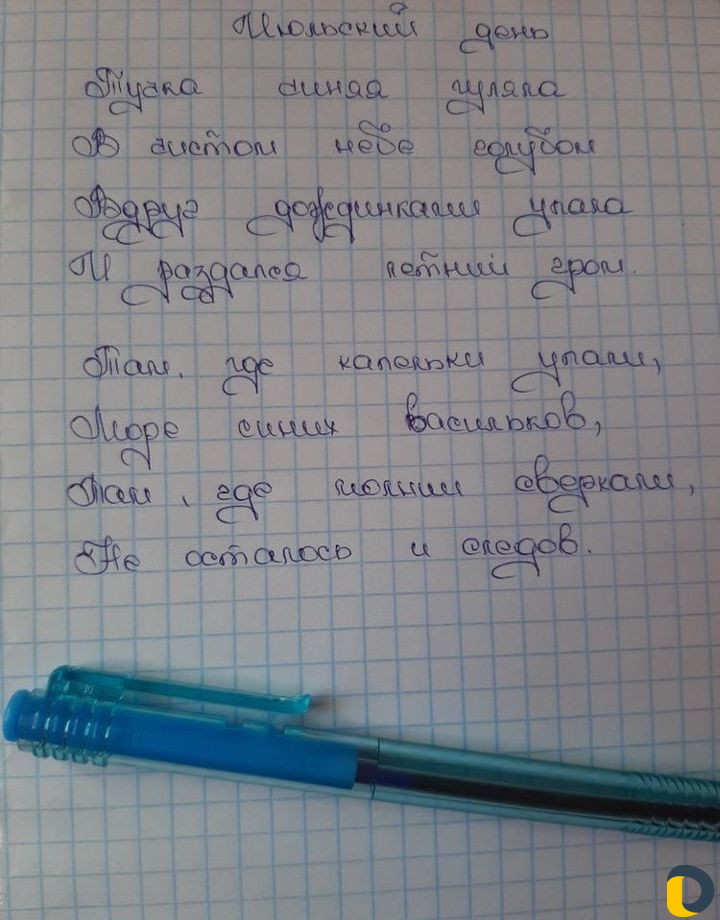 Июльский день
Тучка синяя гуляла
В чистом небе голубом
Вдруг дождинками упала
И раздался летний гром.
Там, где капельки упали,
Море синих васильков,
Там, где молнии сверкали,
Не осталось и следов.